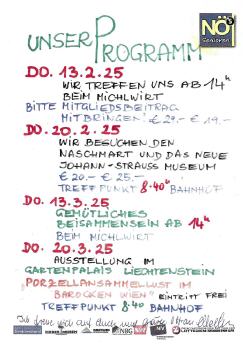 UNSER PROGRAMM
NÖ's
Senioren
DO. 13.2.25
WIR TREFFEN UNS AB 14h
BEIM MICHLWIRT
BITTE MITGLIEDSBEITRAG
MITBRINGEN! €20.- €19.-
DO. 20.2.25
WIR BESUCHEN DEN
NASCHMART UND DAS NEUE
JOHANN-STRAUSS MUSEUM
€20.- €25.-
TREFFPUNKT 8.40h BAHNHOF
DO. 13.3.25
GEMÜTLICHES
BEISAMMENSEIN AB 14h
BEIM MICHLWIRT
DO. 20.3.25
AUSSTELLUNG IM
GARTENPALAIS LIECHTENSTEIN
PORZELLANSAMMELLUST IM
BAROCKEN WIEN? EINTRITT FREI
TREFFPUNKT 8.40h BAHNHOF
Ich freue mich auf